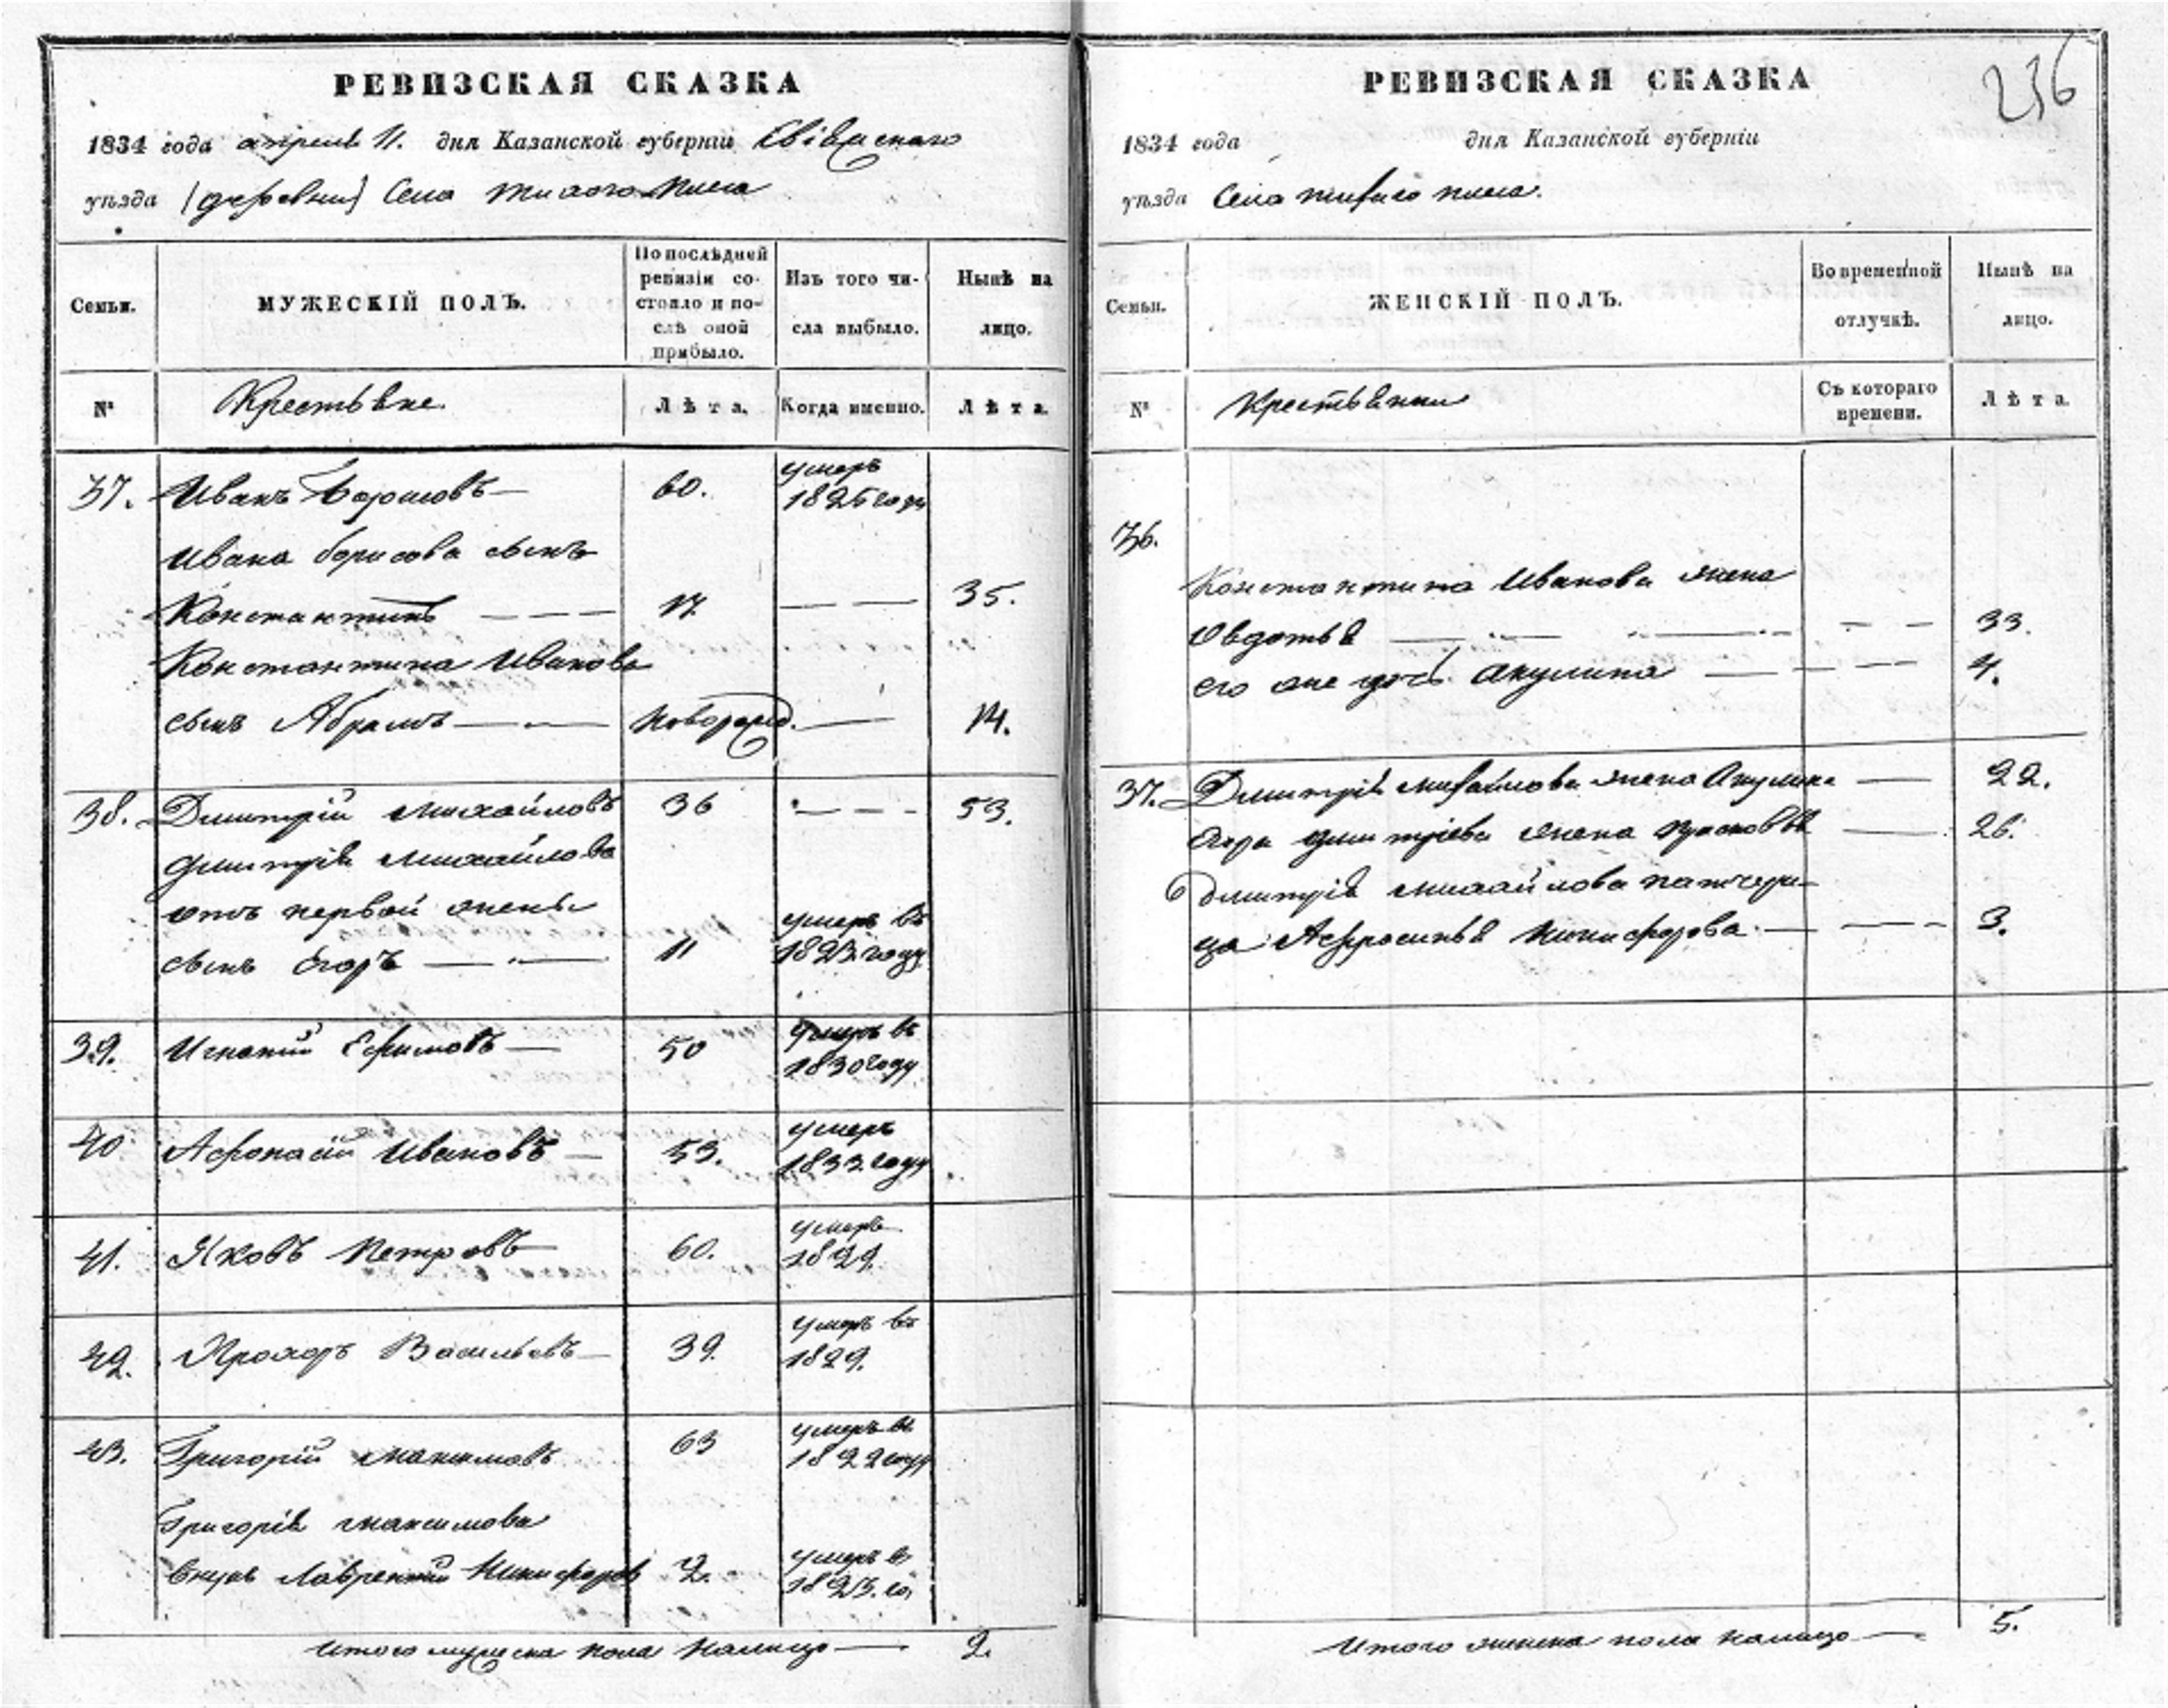 РЕВИЗСКАЯ СКАЗКА
1834 года апреля 11. дня Казанской губерніи Свіяжскаго
уѣзда (деревни) Села Тихаго Плеса
Семьи.
МУЖЕСКІЙ ПОЛЪ.
По послѣдней ревизіи состояло и послѣ оной прибыло.
Изъ того числа выбыло.
Нынѣ на лицо.
№
Крестьяне.
Лѣта.
Когда именно.
Лѣта.
37. Иванъ Борисовъ 60. умеръ 1825 году
Ивана Борисова сынъ
Константинъ 17 35.
Константина Иванова
сынъ Абрамъ новорожд. 14.
38. Дмитрій Михайловъ 36 53.
Дмитрія Михайлова
отъ первой жены
сынъ Егоръ 11 умеръ въ 1823 году
39. Игнатий Ефимовъ 50 умеръ въ 1830 году
40 Афонасій Ивановъ 53. умеръ 1833 году
41. Яковъ Петровъ 60. умеръ 1829.
42. Прохоръ Васильевъ 39. умеръ въ 1829.
43. Григорій Максимовъ 63 умеръ въ 1822 году
Григорія Максимова
внукъ Лаврентий Никифоровъ 2. умеръ в 1823. го
Итого мужеска пола налицо 2.
236
РЕВИЗСКАЯ СКАЗКА
1834 года дня Казанской губерніи
уѣзда Села Тихаго Плеса.
Семьи.
ЖЕНСКІЙ ПОЛЪ.
Во временной отлучкѣ.
Нынѣ на лицо.
№
Крестьянки
Съ котораго времени.
Лѣта
36.
Константина Иванова жена
Овдотья 33.
его же дочь Акулина 4.
37. Дмитрія Михайлова жена Акулина 22.
Егора Дмитріева жена Прасковья 26.
Дмитрія Михайлова патчери-
ца Афросинья Никифорова 3.
Итого женска пола налицо 5.